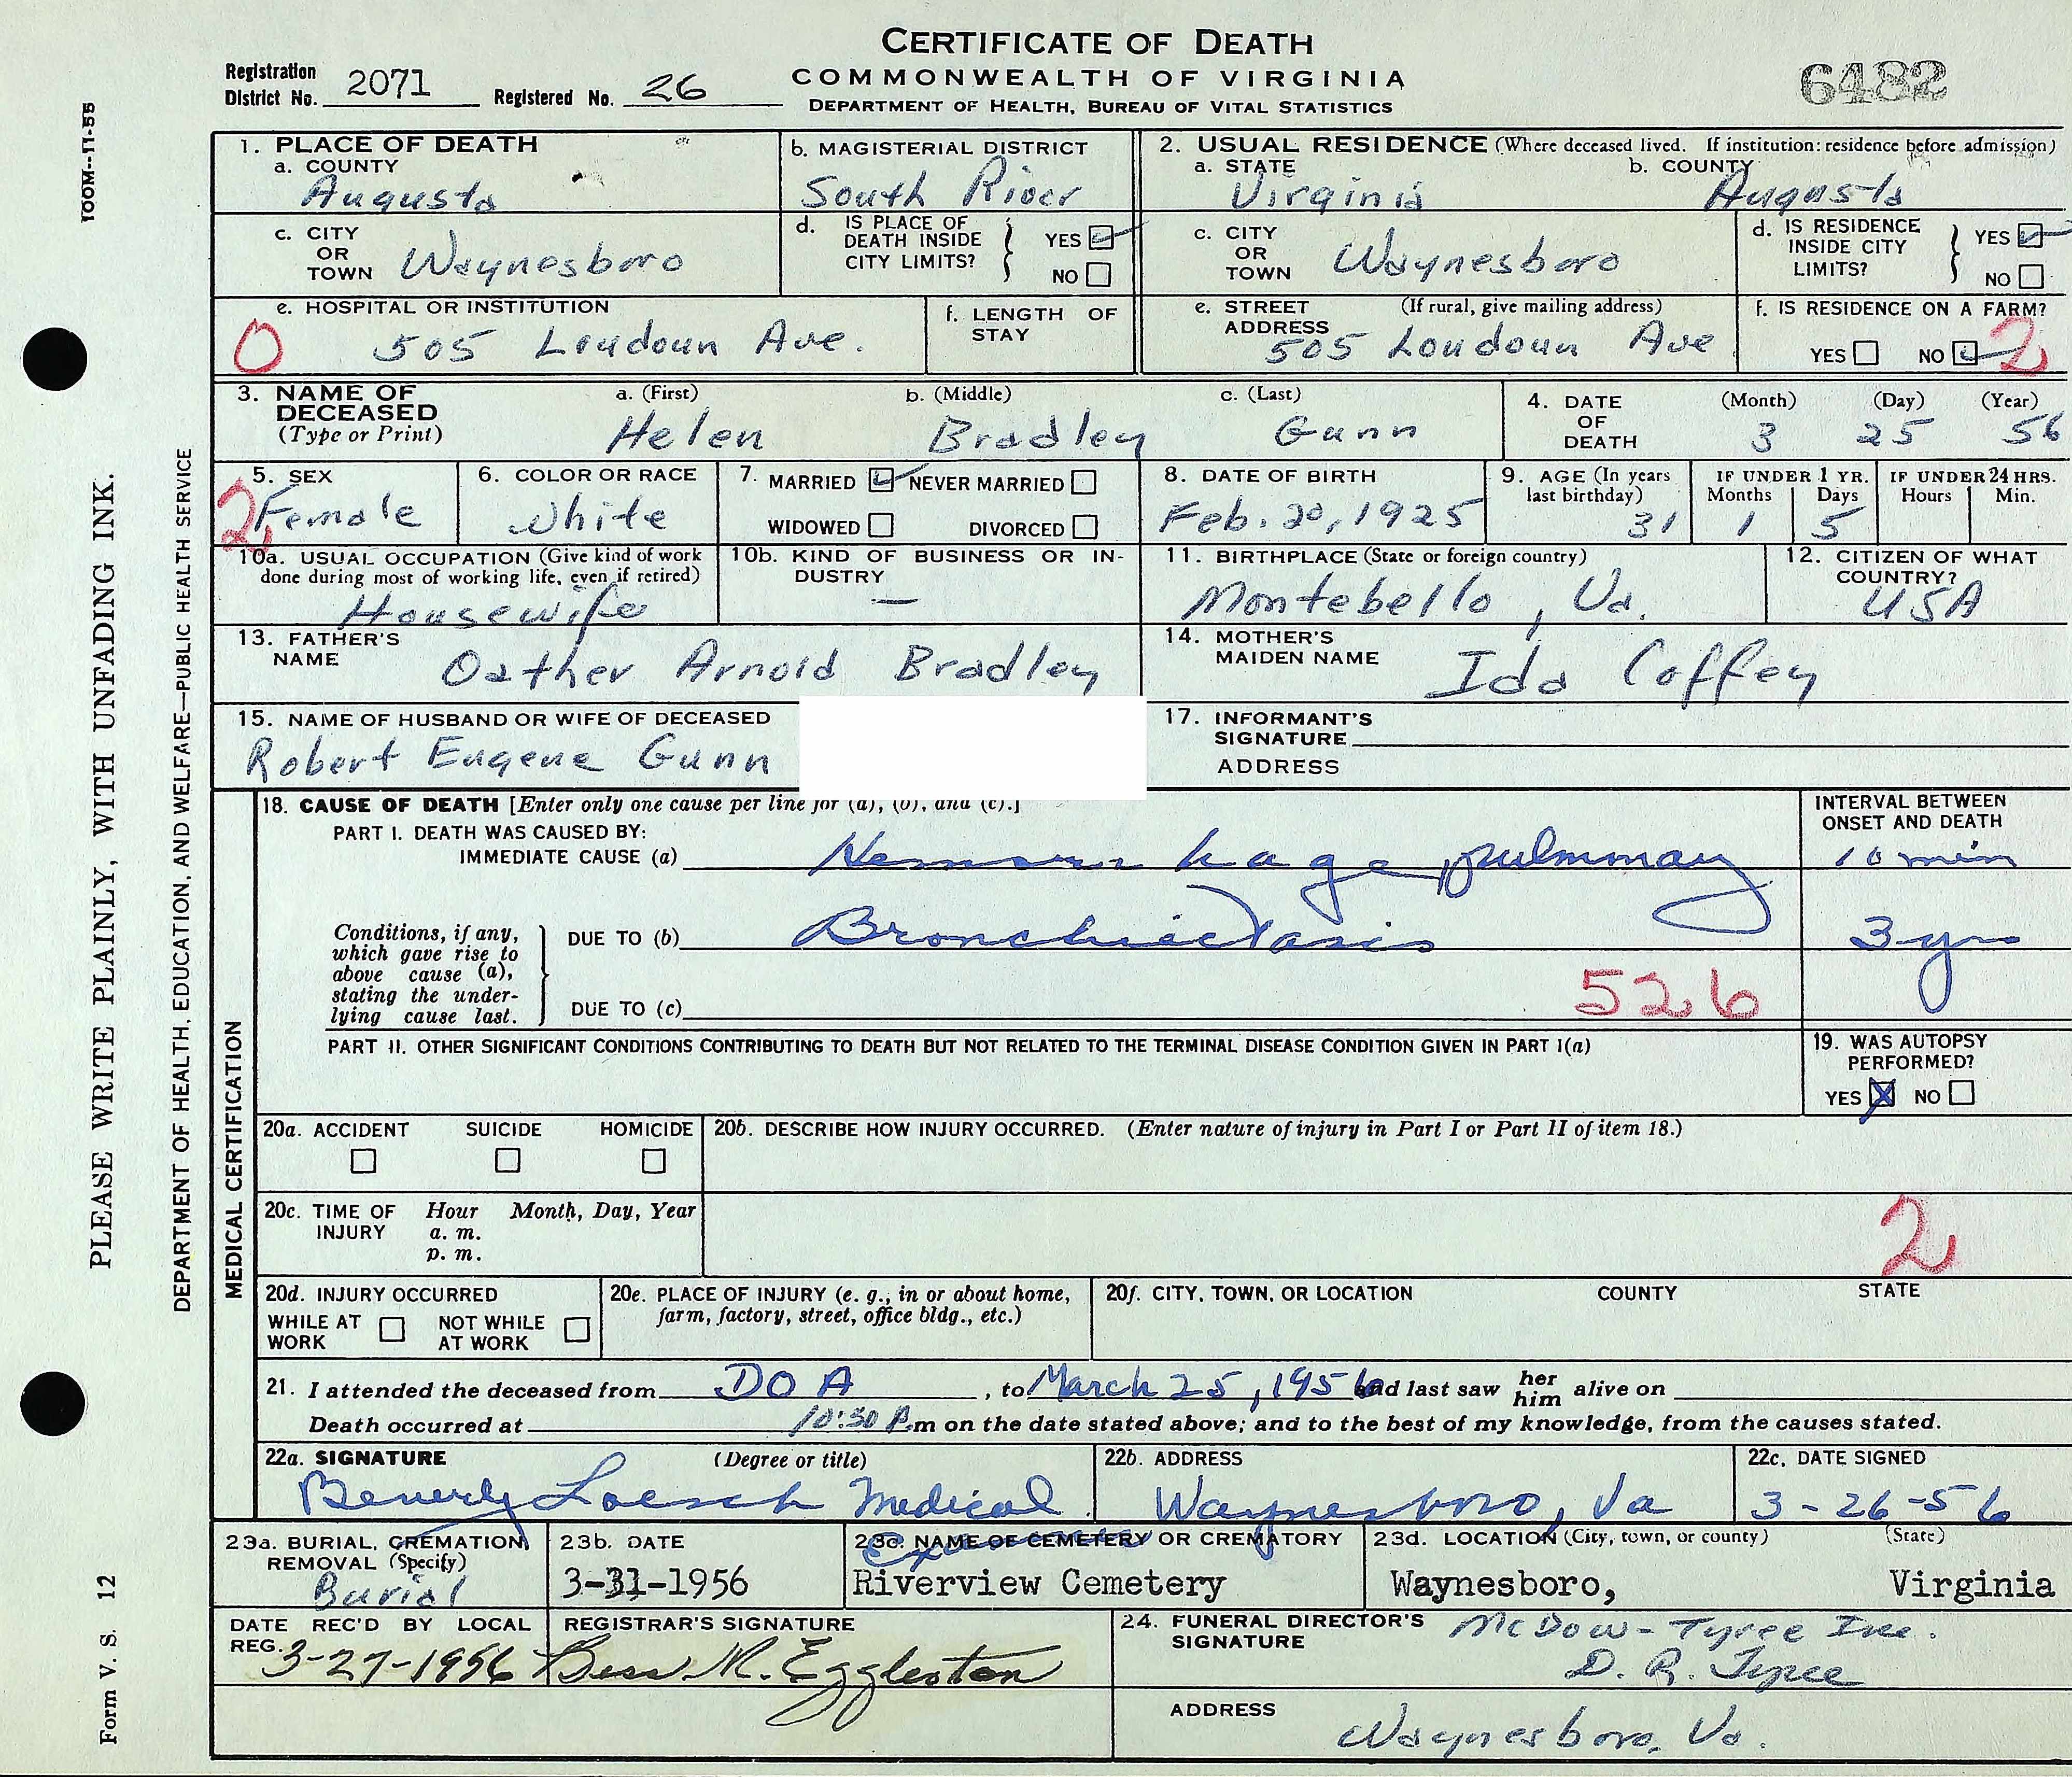 CERTIFICATE OF DEATH
COMMONWEALTH OF VIRGINIA
DEPARTMENT OF HEALTH, BUREAU OF VITAL STATISTICS
Registration District No. 2071 Registered No. 26
6482
100M--11-55
PLEASE WRITE PLAINLY, WITH UNFADING INK.
DEPARTMENT OF HEALTH, EDUCATION, AND WELFARE—PUBLIC HEALTH SERVICE
Form V. S. 12
1. PLACE OF DEATH
a. COUNTY
Augusta
b. MAGISTERIAL DISTRICT
South River
2. USUAL RESIDENCE (Where deceased lived. If institution: residence before admission)
a. STATE
Virginia
b. COUNTY
Augusta
c. CITY OR TOWN Waynesboro
d. IS PLACE OF DEATH INSIDE CITY LIMITS? YES NO
c. CITY OR TOWN Waynesboro
d. IS RESIDENCE INSIDE CITY LIMITS? YES NO
e. HOSPITAL OR INSTITUTION
0
505 Loudoun Ave.
f. LENGTH OF STAY
e. STREET ADDRESS (If rural, give mailing address)
505 Loudoun Ave
f. IS RESIDENCE ON A FARM?
YES NO 2
3. NAME OF DECEASED
(Type or Print)
a. (First) b. (Middle) c. (Last)
Helen Bradley Gunn
4. DATE OF DEATH
(Month) (Day) (Year)
3 25 56
5. SEX
2 Female
6. COLOR OR RACE
White
7. MARRIED NEVER MARRIED
WIDOWED DIVORCED
8. DATE OF BIRTH
Feb. 20, 1925
9. AGE (In years last birthday)
31
IF UNDER 1 YR.
Months Days
1 5
IF UNDER 24 HRS.
Hours Min.
10a. USUAL OCCUPATION (Give kind of work done during most of working life, even if retired)
Housewife
10b. KIND OF BUSINESS OR INDUSTRY
—
11. BIRTHPLACE (State or foreign country)
Montebello, Va.
12. CITIZEN OF WHAT COUNTRY?
USA
13. FATHER'S NAME
Oather Arnold Bradley
14. MOTHER'S MAIDEN NAME
Ida Coffey
15. NAME OF HUSBAND OR WIFE OF DECEASED
Robert Eugene Gunn
17. INFORMANT'S SIGNATURE
ADDRESS
MEDICAL CERTIFICATION
18. CAUSE OF DEATH [Enter only one cause per line for (a), (b), and (c).]
INTERVAL BETWEEN ONSET AND DEATH
PART I. DEATH WAS CAUSED BY:
IMMEDIATE CAUSE (a) Hemorrhage pulmonary 10 min
Conditions, if any, which gave rise to above cause (a), stating the underlying cause last.
DUE TO (b) Bronchiectasis 3 yrs
DUE TO (c)
526
PART II. OTHER SIGNIFICANT CONDITIONS CONTRIBUTING TO DEATH BUT NOT RELATED TO THE TERMINAL DISEASE CONDITION GIVEN IN PART I(a)
19. WAS AUTOPSY PERFORMED?
YES X NO
20a. ACCIDENT SUICIDE HOMICIDE
20b. DESCRIBE HOW INJURY OCCURRED. (Enter nature of injury in Part I or Part II of item 18.)
20c. TIME OF INJURY Hour Month, Day, Year
a. m.
p. m.
2
20d. INJURY OCCURRED
WHILE AT WORK NOT WHILE AT WORK
20e. PLACE OF INJURY (e. g., in or about home, farm, factory, street, office bldg., etc.)
20f. CITY, TOWN, OR LOCATION COUNTY STATE
21. I attended the deceased from DOA, to March 25, 1956 and last saw her him alive on
Death occurred at 10:30 P.m on the date stated above; and to the best of my knowledge, from the causes stated.
22a. SIGNATURE (Degree or title)
Beverly Loesch Medical
22b. ADDRESS
Waynesboro, Va
22c. DATE SIGNED
3-26-56
23a. BURIAL, CREMATION, REMOVAL (Specify)
Burial
23b. DATE
3-31-1956
23c. NAME OF CEMETERY OR CREMATORY
Riverview Cemetery
23d. LOCATION (City, town, or county) (State)
Waynesboro, Virginia
DATE REC'D BY LOCAL REG.
3-27-1956
REGISTRAR'S SIGNATURE
Bess M. Eggleston
24. FUNERAL DIRECTOR'S SIGNATURE
McDow-Tyree Inc.
D. R. Tyree
ADDRESS
Waynesboro, Va.